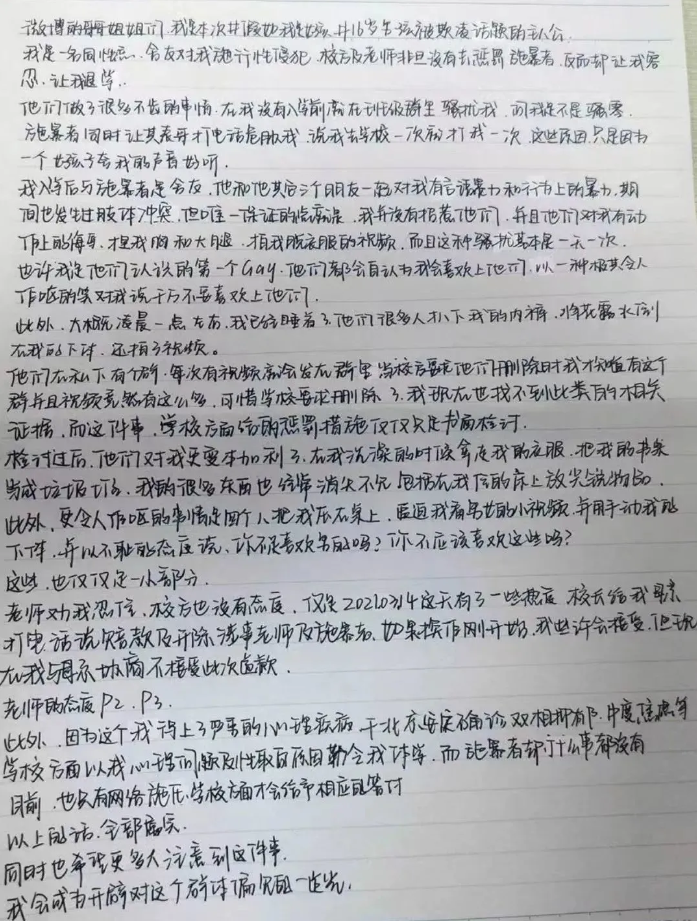 微博的哥哥姐姐们,我是本次#假如我是 #16岁 被欺凌话题的主人公
我是一名同性恋、舍友对我施行性侵犯、校方及老师非但没有去惩罚施暴者、反而却让我容
忍、让我退学..
他们做了很多不齿的事情、在我没有入学前就在 级群里骚扰我、问我是不是骚零、
施暴者同时让其 打电话危胁我、说我去学校一次就打我一次、这些原因只是因为
一个女孩子夸我的声音好听.
我入学后与施暴者是舍友、他和他其它三个朋友一起对我有言语暴力和行为上的暴力、期
间也发生过肢体冲突、但唯一保证的 是、我并没有招惹他们、并且他们对我有动
作上的侮辱、捏我胸和大腿、拍我脱衣服的视频、而且这种骚扰基本是一天一次、
也许我是他们认识的第一个Gay、他们都会自认为我会喜欢上他们、以一种极其令人
作呕的笑对我说千万不要喜欢上他们、
此外、大概凌晨一点左右,我已经睡着了、他们很多人扒下我的内裤、将花露水倒
在我的下体、还拍了视频。
他们在私下有个群、每次有视频就会发在群里 当校方要求他们删除时我才知道有这个
群并且视频竟然有这么多、可惜学校要求删除了、我现在也找不到此类的相关
证据、而这件事、学校方面给的惩罚措施仅仅只是书面检讨.
检讨过后、他们对我更变本加利了、在我洗澡的时候拿走我的衣服、把我的书桌
当成垃圾 、我的很多东西也经常消失不见 包括在我住的床上放尖锐物品、
此外、更令人作呕的事情是四个人把我压在桌上、逼迫我看 的小视频、并用手动我的
下体、并以不耻的态度说、你不是喜欢男的吗?你不应该喜欢这些吗?
这些、也仅仅是一小部分、
老师劝我忍住、校方也没有态度、仅是20210314这天有了一些热度 校长给我母亲
打电话说赔款及开除涉事老师及施暴者、如果操作刚开始、我也许会接受、但现
在我与 示协商不接受此次赔款.
老师的态度P2、P3、
此外、因为这个我得上了严重的心理疾病、于北京安定确诊双相抑郁、中度焦虑等
学校方面以我心理问题及性取向原因勒令我休学、而施暴者却什么事都没有
目前、也只有网络施压学校方面才会给予相应的答付
以上的话、全部属实、
同时也希望更多人注意到这件事.
我会成为开辟对这个群体偏见的一 光、